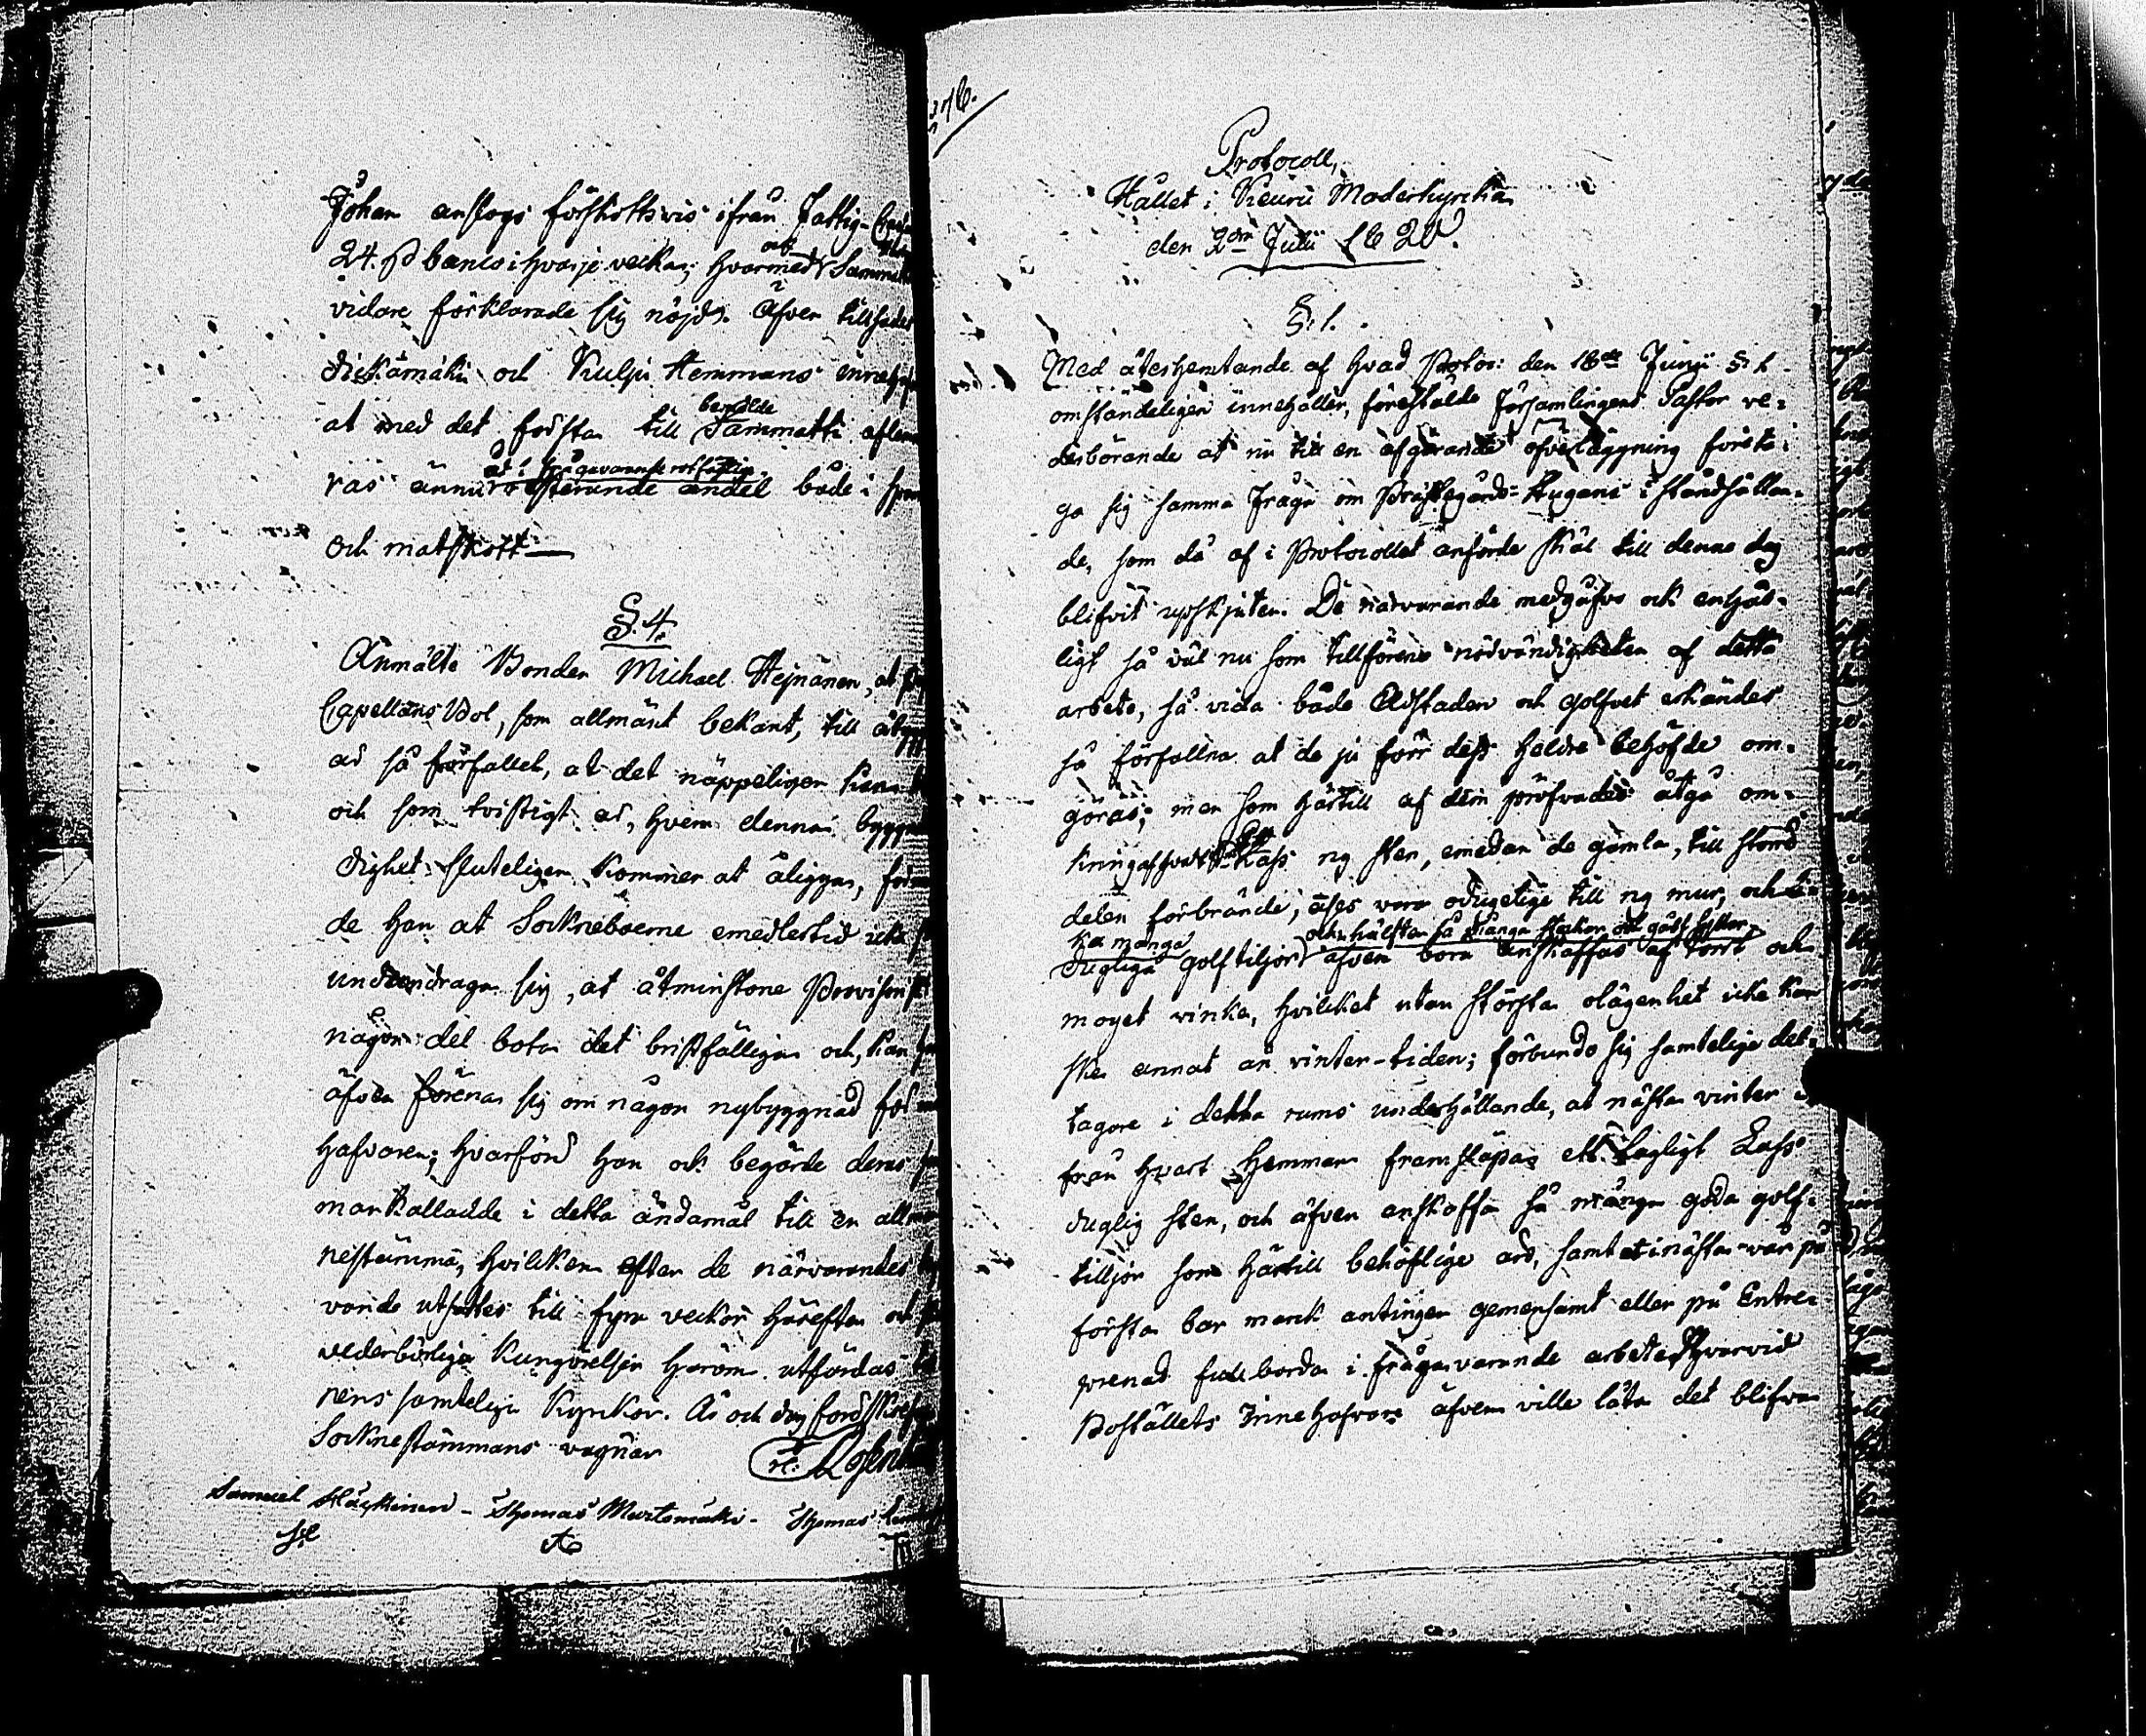 Johan anslogs förskottsvis ifrån Fattig-
24. ß banco i hvarje vecka; hvarmed
vidare förklarade sig nöjd. Äfven
och Kulju Hemmans
at med det första till bemälde Sammatti
ras ännu resterande andel både i
och matskott
§. 4.
Anmälte Bonden Michael Hejnänen, at
Capellans Bol, som allmänt bekant, till
är så förfallet, at det näppeligen kan
och som tvistigt är, hvem denna
dighet sluteligen kommer at åligga,
de han at Sockneboerne emedlertid icke
undandraga sig, at åtminstone
någon del bota det bristfälliga och, kan
äfven förena sig om någon nybyggnad för
hafvaren; hvarföre han ock begärde deras
mankallade i detta ändamål till en
nestämma, hvilken efter de närvarandes
vande utsattes till fyra veckor härefter och
vederbörliga kungörelser härom utfärdas
nens samtelige Kyrkor. År och dag
Sockne stämmans vägnar
Samuel Häykinen - Thomas Murtomäki - Thomas
376.
Protocoll,
Hållet i Keuru Moderkyrka
den 2dra Julii 1820.
§. 1.
Med återhemtande af hvad Protoc: den 18de Junii §. 1
omständeligen innehåller, förestälde Församlingens Pastor ve-
derbörande at nu till en afgörande öfverläggning företa-
ga sig samma fråga om Prästegårds-Stugans i ståndsättan-
de, som då af i Protocollet anförde skäl till denna dag
blifvit upskjuten. De närvarande medgåfvo ock enhäl-
ligt så väl nu som tillförene nödvändigheten af detta
arbete, så vida både Eldstaden och golfvet erkändes
så förfallna at de ju förr dess heldre behöfde om-
göras; men som härtill af dem pröfvades åtgå om-
kring Lass ny sten, emedan de gamla, till större
delen förbrände, anses vara odugelige till ny mur, och
många och hälften så många
dugliga golftiljor äfven böra anskaffas af torrt och
moget virke, hvilket utan största olägenhet icke kan
ske annat än vinter-tiden; förbundo sig samtelige del-
tagare i detta rums underhållande, at nästa vinter
från hvart Hemman framsläpa ett dagligt Lass
duglig sten, och äfven anskaffa så många goda golf-
tilljor som härtill behöflige äro, samt at i nästa vår på
första bar mark antingen gemensamt eller på Entre-
prenad fullborda i fråga varande arbete, hvarvid
Boställets Innehafvare äfven ville låta det blifva